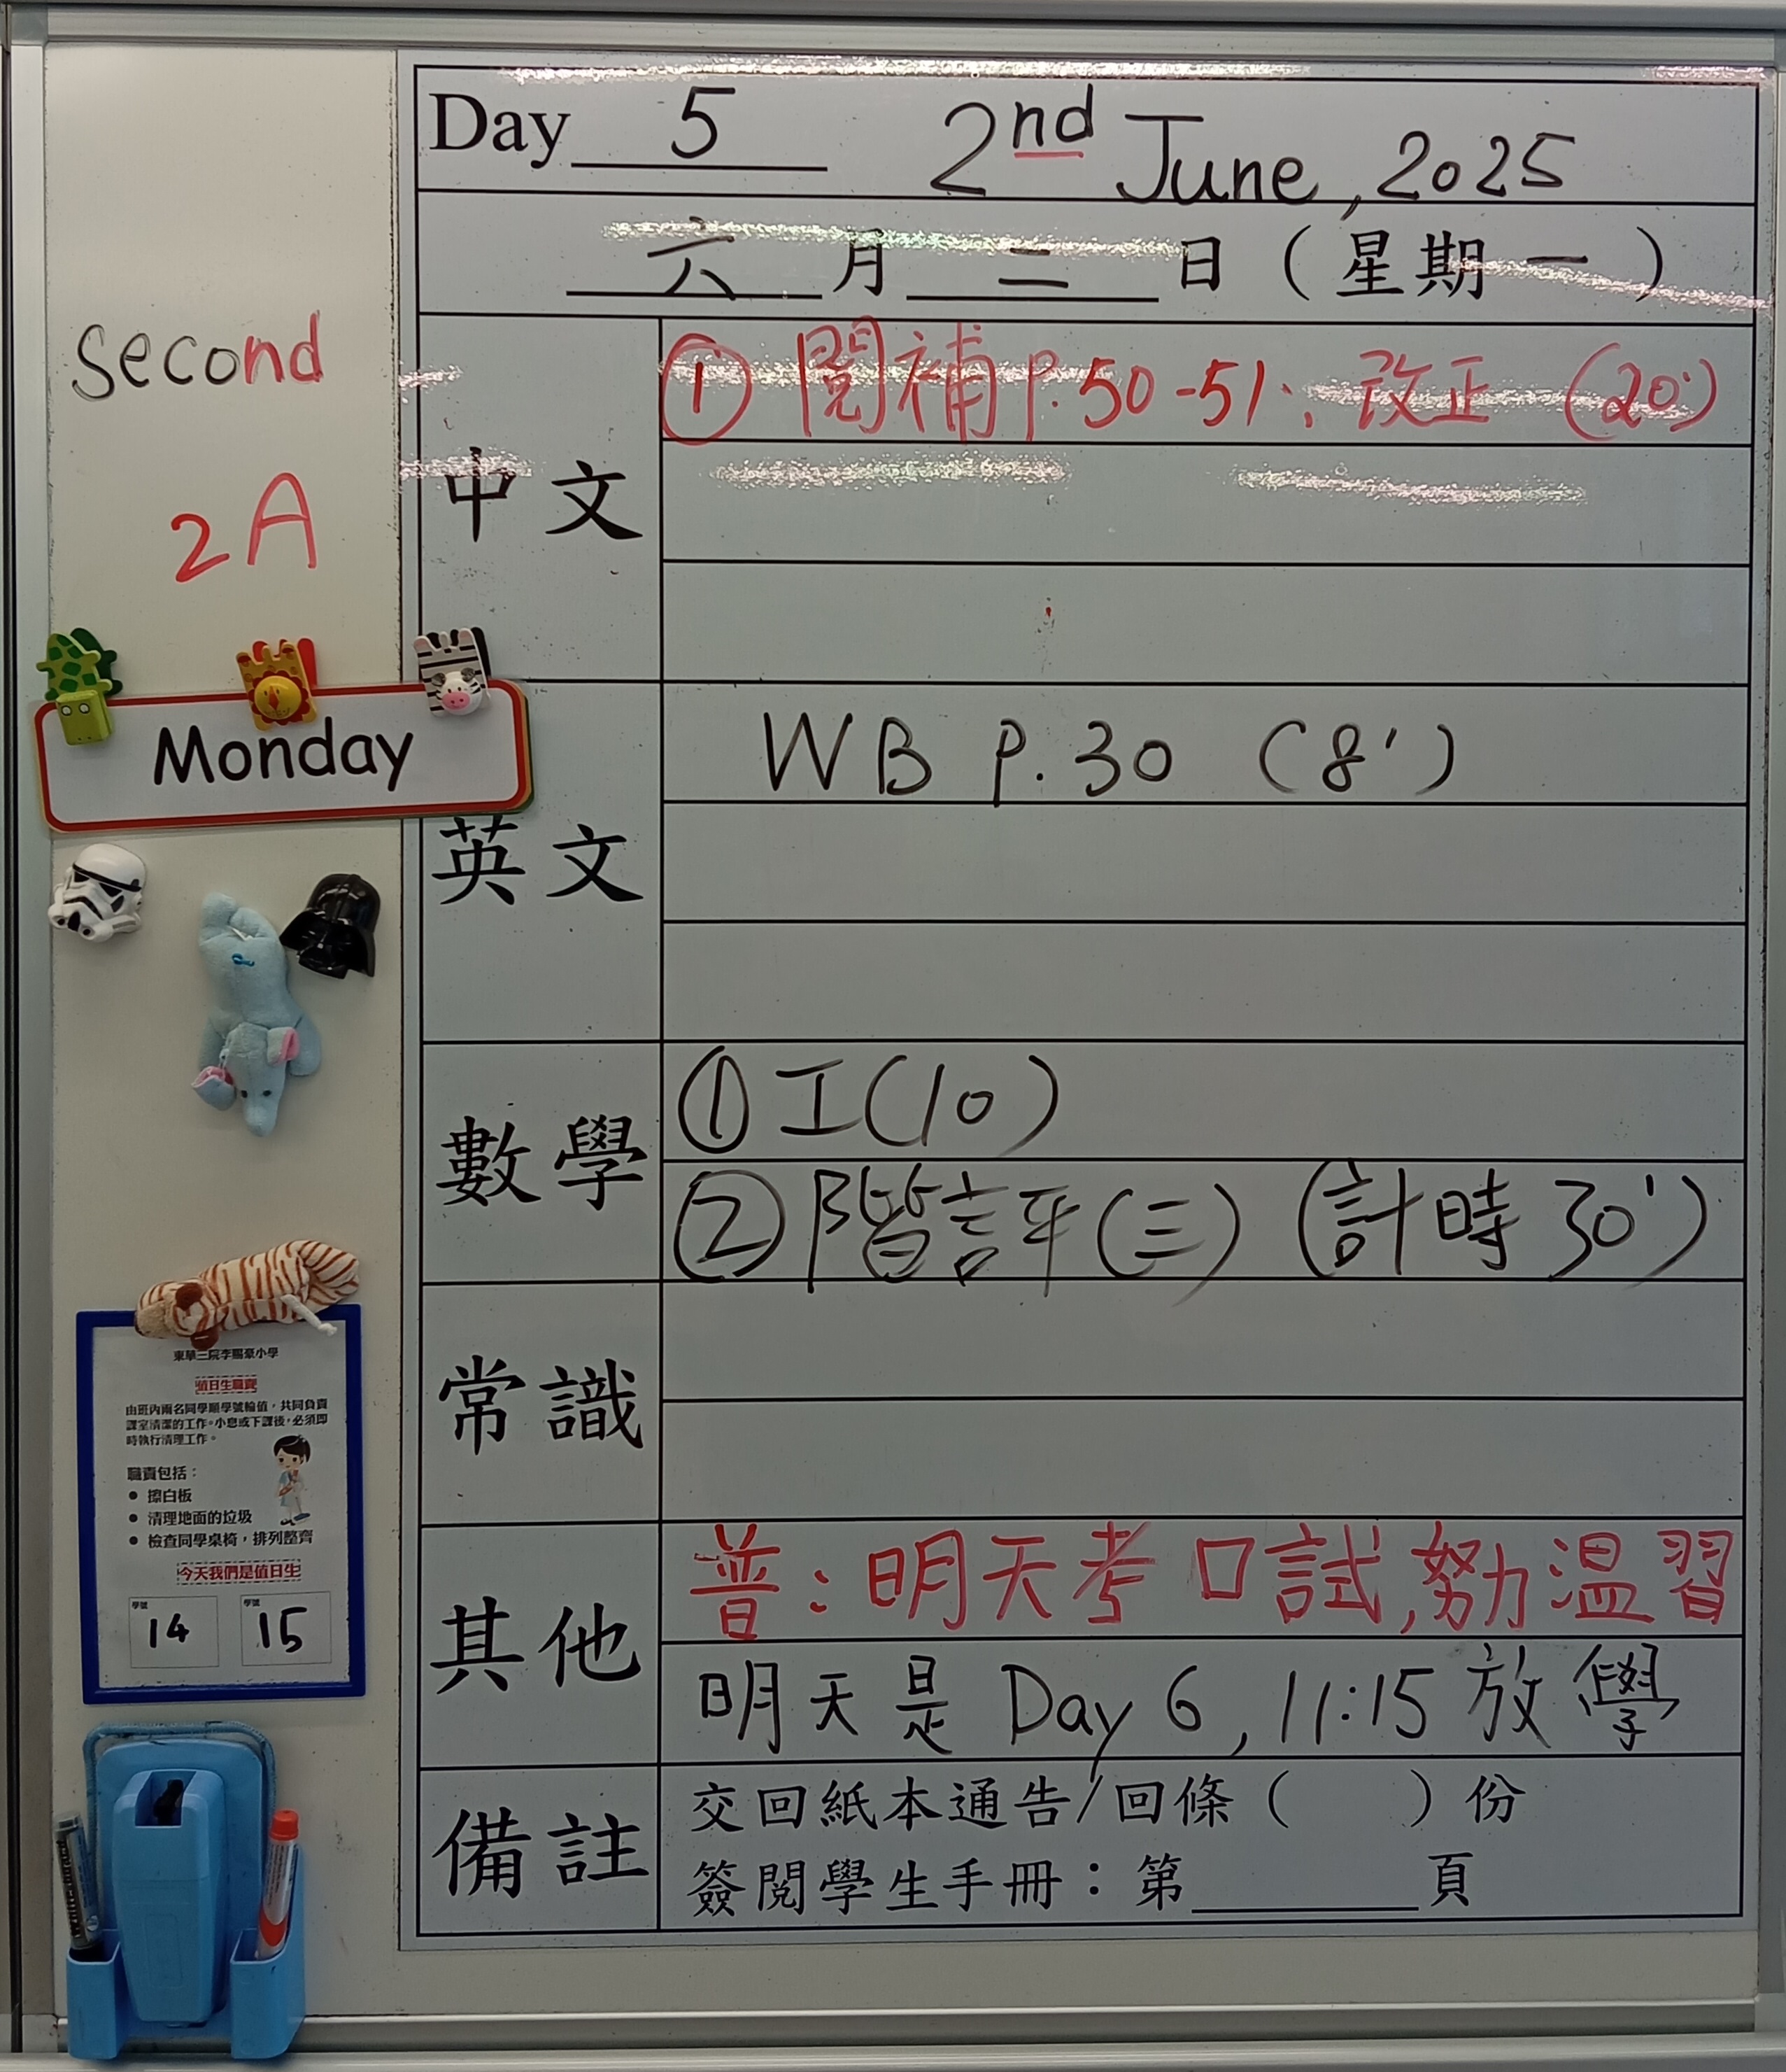 Day 5 2nd June, 2025
六 月 二 日 ( 星期 一 )
second
2A
中文
① 閱補 p.50-51、改正 (20')
Monday
英文
WB p.30 (8')
數學
① 工(10)
② 階評(三) (計時 30')
常識
其他
普:明天考口試,努力温習
明天是 Day 6, 11:15 放學
備註
交回紙本通告/回條( )份
簽閱學生手冊:第______頁
東華三院李賜豪小學
值日生職責
由班內兩名同學順學號輪值,共同負責
課室清潔的工作。小息或下課後,必須即
時執行清理工作。
職責包括:
• 擦白板
• 清理地面的垃圾
• 檢查同學桌椅,排列整齊
今天我們是值日生
學號 14 學號 15